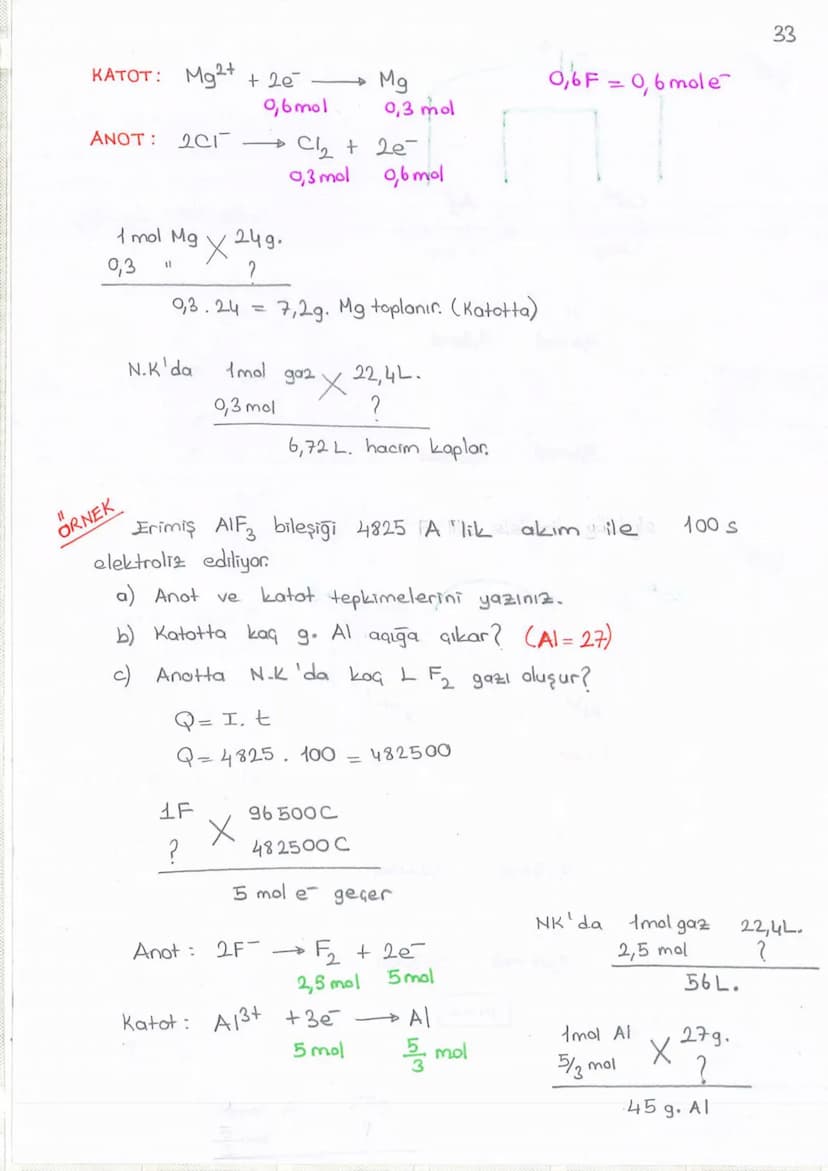 33
KATOT: Mg²⁺ + 2e⁻ → Mg 0,6F = 0,6 mol e⁻
0,6 mol 0,3 mol
ANOT: 2Cl⁻ → Cl₂ + 2e⁻
0,3 mol 0,6 mol
1 mol Mg 24g.
0,3 " ?
0,3 . 24 = 7,2g. Mg toplanır. (Katotta)
N.K'da 1mol gaz 22,4L.
0,3 mol ?
6,72 L. hacim kaplar.
ÖRNEK Erimiş AlF₃ bileşiği 4825 A 'lik akım ile 100 s
elektroliz ediliyor.
a) Anot ve katot tepkimelerini yazınız.
b) Katotta kaç g. Al açığa çıkar? (Al = 27)
c) Anotta N.K 'da kaç L F₂ gazı oluşur?
Q = I. t
Q = 4825 . 100 = 482500
1F 96500C
? 482500C
5 mol e⁻ geçer
Anot : 2F⁻ → F₂ + 2e⁻
2,5 mol 5 mol
Katot : Al³⁺ + 3e⁻ → Al
5 mol 5/3 mol
NK'da 1mol gaz 22,4L.
2,5 mol ?
56 L.
1mol Al 27g.
5/3 mol ?
45 g. Al